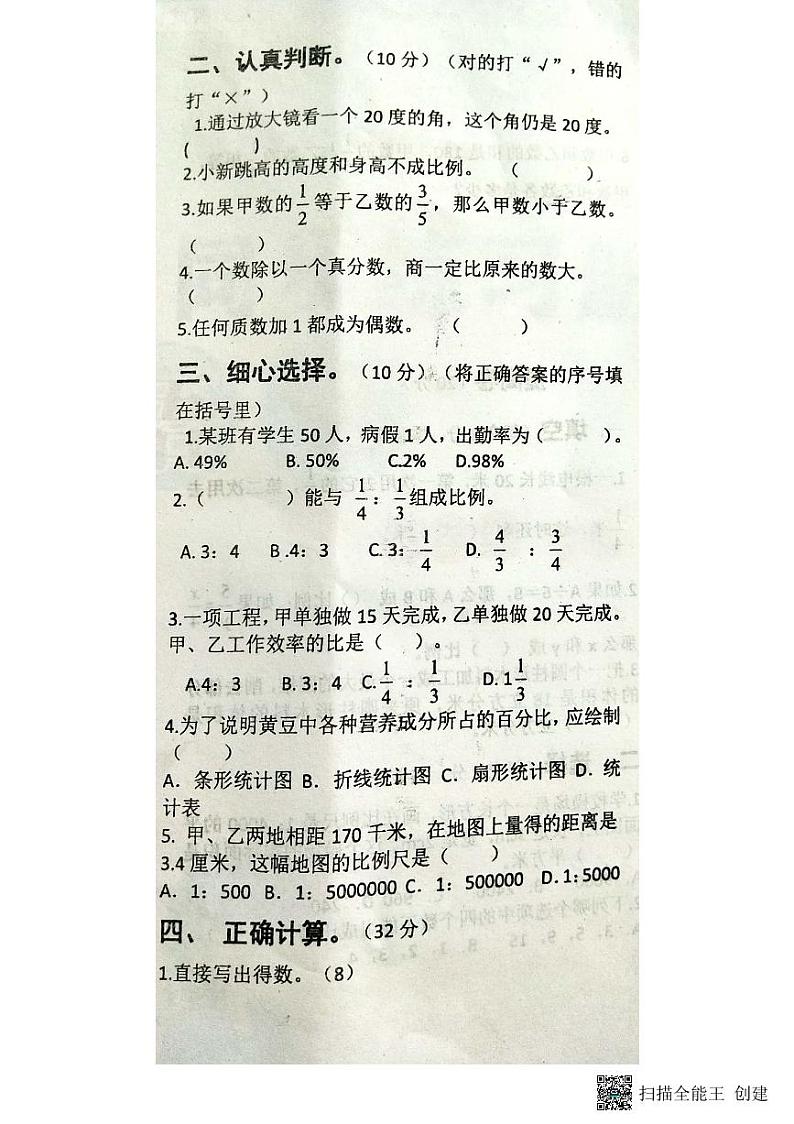 二、认真判断。（10 分）（对的打“ √ ”，错的
打“×”）
1.通过放大镜看一个 20 度的角，这个角仍是 20 度。
(        )
2.小新跳高的高度和身高不成比例。 （      ）
3.如果甲数的 1/2 等于乙数的 3/5，那么甲数小于乙数。
（      ）
4.一个数除以一个真分数，商一定比原来的数大。
（      ）
5.任何质数加 1 都成为偶数。 （      ）
三、细心选择。（10 分）（将正确答案的序号填
在括号里）
1.某班有学生 50 人，病假 1 人，出勤率为（      ）。
A. 49%  B. 50%  C.2%  D.98%
2.（      ）能与 1/4 ： 1/3 组成比例。
A. 3：4  B .4：3  C. 3：1/4  D. 4/3 ： 3/4
3.一项工程，甲单独做 15 天完成，乙单独做 20 天完成。
甲、乙工作效率的比是（    ）。
A.4：3  B. 3：4  C. 1/4 ： 1/3  D. 1 1/3
4.为了说明黄豆中各种营养成分所占的百分比，应绘制
（    ）
A．条形统计图 B．折线统计图 C．扇形统计图 D．统
计表
5. 甲、乙两地相距 170 千米，在地图上量得的距离是
3.4 厘米，这幅地图的比例尺是（    ）
A．1：500 B．1：5000000 C．1：500000 D．1：5000
四、 正确计算。（32 分）
1.直接写出得数。（8）
扫描全能王 创建